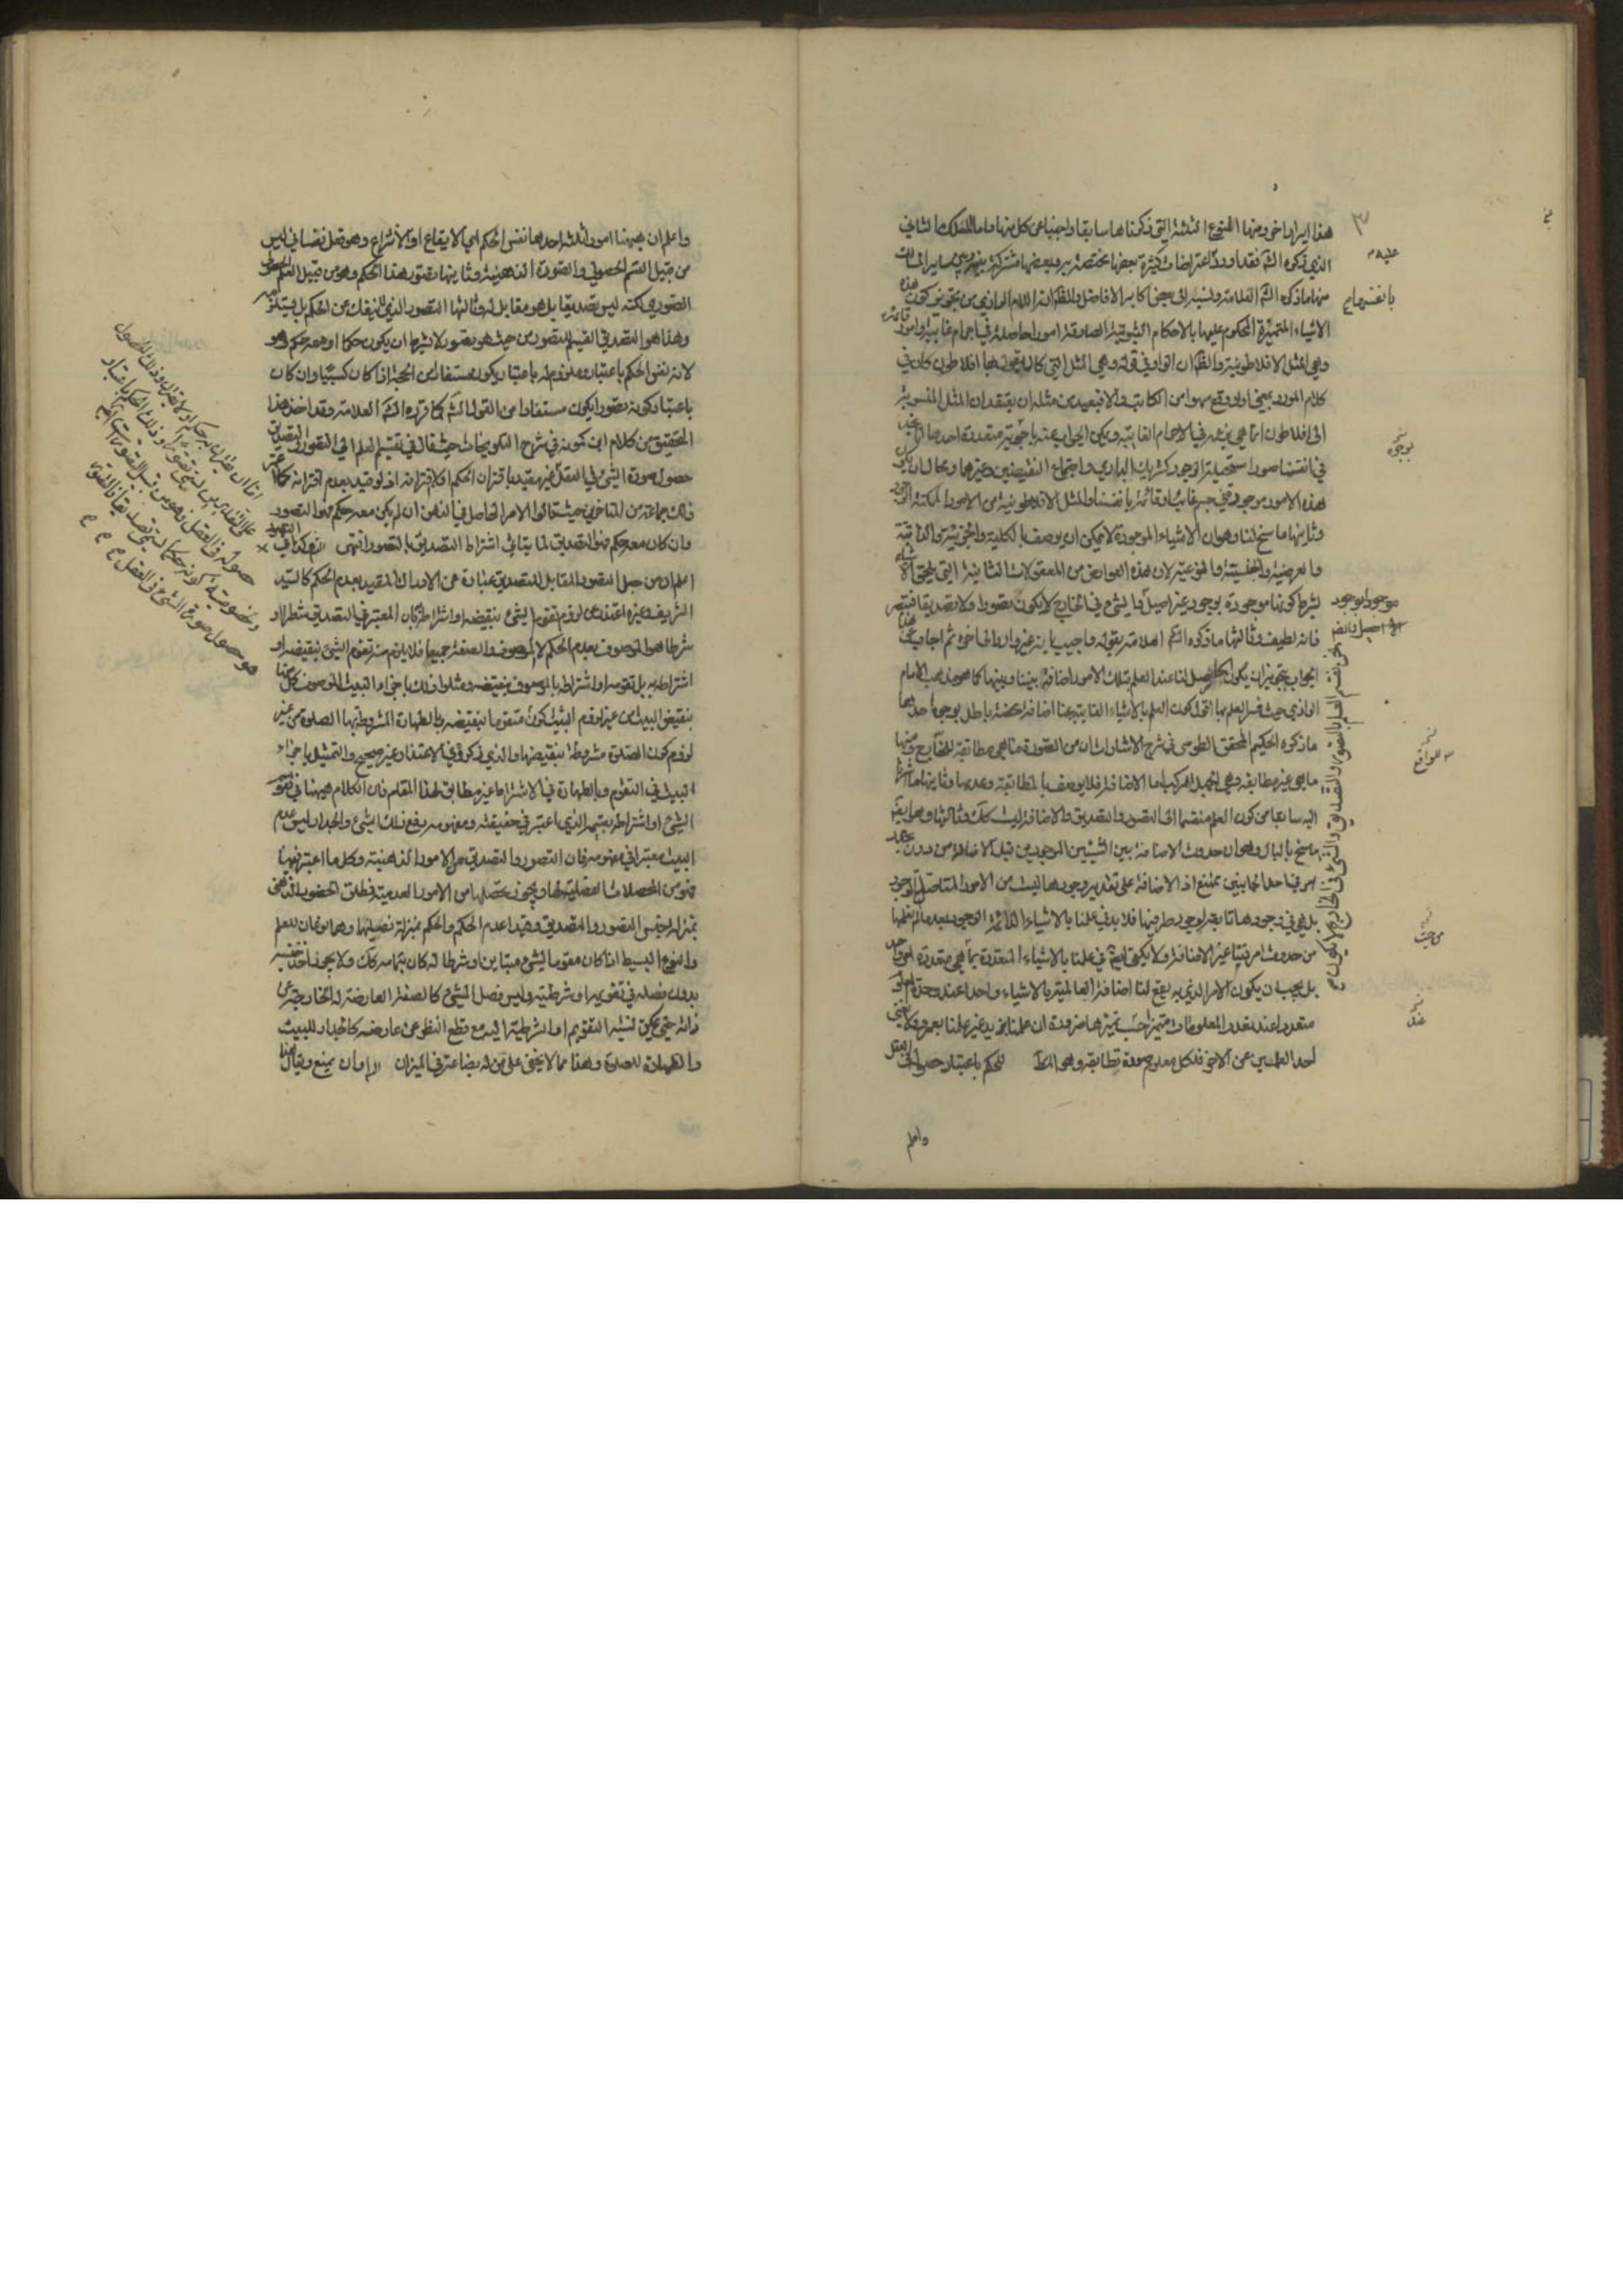 هذا ايراد اخر ومنها المنوع الثلثة التي ذكرناها سابقا واجبنا عن كل منها واما المسلك الثاني
الذي ذكره الشه فقد اورد اعتراضات كثيرة بعضها مختصة به وبعضها مشتركة بينه وبين سائر المسالك
منها ما ذكره الشه العلامة ونسبه الى بعض اكابر الافاضل والظ انه الامام الرازي من تجويز كون هذه
الاشياء المتميزة المحكوم عليها بالاحكام الثبوتية الصادقة امورا حاصلة في اجرام غائبة او امور قائمة
وهي المثل الافلاطونية والظ ان الواو في قوله وهي المثل التي كان يقول بها افلاطون كان في
كلام المورد بمعنى او او وقع سهوا من الكاتب والا فبعيد من مثله ان يعتقد ان المثل المنسوبة
الى افلاطون انما هي بزعمه في الاجرام الغائبة ويمكن الجواب عنه باجوبة متعددة احدها انا نجد
في انفسنا صورا مستحيلة الوجود كشريك الباري واجتماع النقيضين وغيرهما ومحال ان يكون
هذه الامور موجودة في جرم غائب او قائمة بانفسها والمثل الافلاطونية من الامور الممكنة الوجود
وثانيها ما سنح لنا وهو ان الاشياء الموجودة لا يمكن ان يوصف بالكلية والجزئية والذاتية
والعرضية والجنسية والنوعية لان هذه العوارض من المعقولات الثانية التي يلحق الاشياء
بشرط كونها موجودة بوجود غير اصيل وايشئ في الخارج لا يكون تصورا ولا تصديقا فتبصر
فانه لطيف وثالثها ما ذكره الشه العلامة بقوله واجيب بانه غير وارد الى اخره ثم اجاب عن هذا
الجواب بتجويز ان يكون الحاصل لنا عند العلم بتلك الامور اضافة بيننا وبينها كما هو مذهب الامام
الرازي حيث فسر العلم بها اقول كون العلم بالاشياء الغائبة عنا اضافة محضة باطل بوجوه احدها
ما ذكره الحكيم المحقق الطوسي في شرح الاشارات ان من الصورة ما هي مطابقة للخارج ومنها
ما هي غير مطابقة وهي الجهل المركب اما الاضافة فلا يوصف بالمطابقة وعدمها وثانيها ما اشرنا
اليه سابقا من كون العلم منقسما الى التصور والتصديق والاضافة ليست كك وثالثها وهو ايضا
ما سنح بالبال وهو ان حدوث الاضافة بين الشيئين الموجودين قبل الاضافة من دون تجدد
امر في احد الجانبين ممتنع اذ الاضافة على تقدير وجودها ليست من الامور المتاصلة الوجود
بل هي في وجودها تابعة لوجود طرفيها فلا بد في علمنا بالاشياء الدائمة الوجود بعد ما لم نعلمها
من حدوث امر فينا غير الاضافة ولا يكفي ايضا في علمنا بالاشياء المتعددة بما هي متعددة امر واحد
بل يجب ان يكون الامر الذي به يقع لنا اضافة العالمية بالاشياء واحدا عند وحدة المعلوم
متعددا عند تعدد المعلومات متميزا حسب تميزها ضرورة ان علمنا بزيد غير علمنا بعمرو ولا يغني
احد العلمين عن الاخر فلكل معلوم صورة تطابقه وهو المط للحكم باعتبار حصوله في العقل
واعلم
عليه
بانفسها
بوجوه
موجودا بوجود
المواقع
من حيث
عند
واعلم ان ههنا امورا ثلثة احدها نفس الحكم اي الايقاع او الانتزاع وهو فعل نفساني ليس
من قبيل العلم الحصولي والصورة الذهنية وثانيها تصور هذا الحكم وهو من قبيل العلم الحصولي
الصوري لكنه ليس تصديقا بل هو مقابل له وثالثها التصور الذي لا ينفك عن الحكم بل يستلزمه
وهذا هو التصديق القسيم للتصور من حيث هو تصور لا بشرط ان يكون حكما او معه حكم وهو
لازم نفس الحكم باعتبار وملزوم له باعتبار يكون مستفادا من الحجة اذا كان كسبيا وان كان
باعتبار كونه تصورا يكون مستفادا من القول الشه كما قرره الشه العلامة وقد اخذ هذا
التحقيق من كلام ابن كمونة في شرح التلويحات حيث قال في تقسيم العلم الى التصور والتصديق
حصول صورة الشئ في العقل غير مقيد باقتران الحكم او لا اقترانه اذ لو قيد بعدم اقترانه كما
فعله جماعة من المتاخرين حيث قالوا الامر الحاصل في الذهن ان لم يكن معه حكم فهو التصور
وان كان معه حكم فهو التصديق لما يتاتى اشتراط التصديق بالتصور انتهى
اعلم ان من جعل التصور المقابل للتصديق عبارة عن الادراك المقيد بعدم الحكم كالسيد
الشريف وغيره اعتذر عن لزوم تقوم الشئ بنقيضه او اشتراطه بان المعتبر في التصديق شطرا او
شرطا هو الموصوف بعدم الحكم لا الموصوف والصفة جميعا فلا يلزم منه تقوم الشئ بنقيضه او
اشتراطه به بل تقومه او اشتراطه بالموصوف بنقيضه ومثلوا ذلك باجزاء البيت الموصوف كل منها
بنقيض البيت من غير لزوم البيت كونه متقوما بنقيضه وبالطهارة المشروطة بها الصلوة من غير
لزوم كون الصلوة مشروطة بنقيضها والذي ذكروه في الاعتذار غير صحيح والتمثيل باجزاء
البيت في التقوم وبالطهارة في الاشتراط غير مطابق لهذا المقام فان الكلام ههنا في تقوم
الشئ او اشتراطه بقسيمه الذي اعتبر في حقيقته ومفهومه رفع ذلك الشئ والجدار ليس عدم
البيت معتبرا في مفهومه فان التصور والتصديق من الامور الذهنية وكل ما اعتبر فيهما
فهو من المحصلات الفصلية لهما ويجوز تحصلهما من الامور العدمية فمطلق الحضور الذهني
بمنزلة الجنس للتصور والتصديق وقيدا عدم الحكم والحكم بمنزلة فصليهما وهما نوعان للعلم
والنوع البسيط اذا كان مقوما لشئ مباين او شرطا له كان بتمامه كك ولا يجوز اخذ جنسه
بدون فصله في تقويمه او شرطيته وليس فصل الشئ كالصفة العارضة له الخارجة عن
ذاته حتى يمكن نسبة التقويم او الشرطية اليه مع قطع النظر عن عارضه كالجدار للبيت
والطهارة للصلوة وهذا مما لا يخفى على من له بضاعة في الميزان